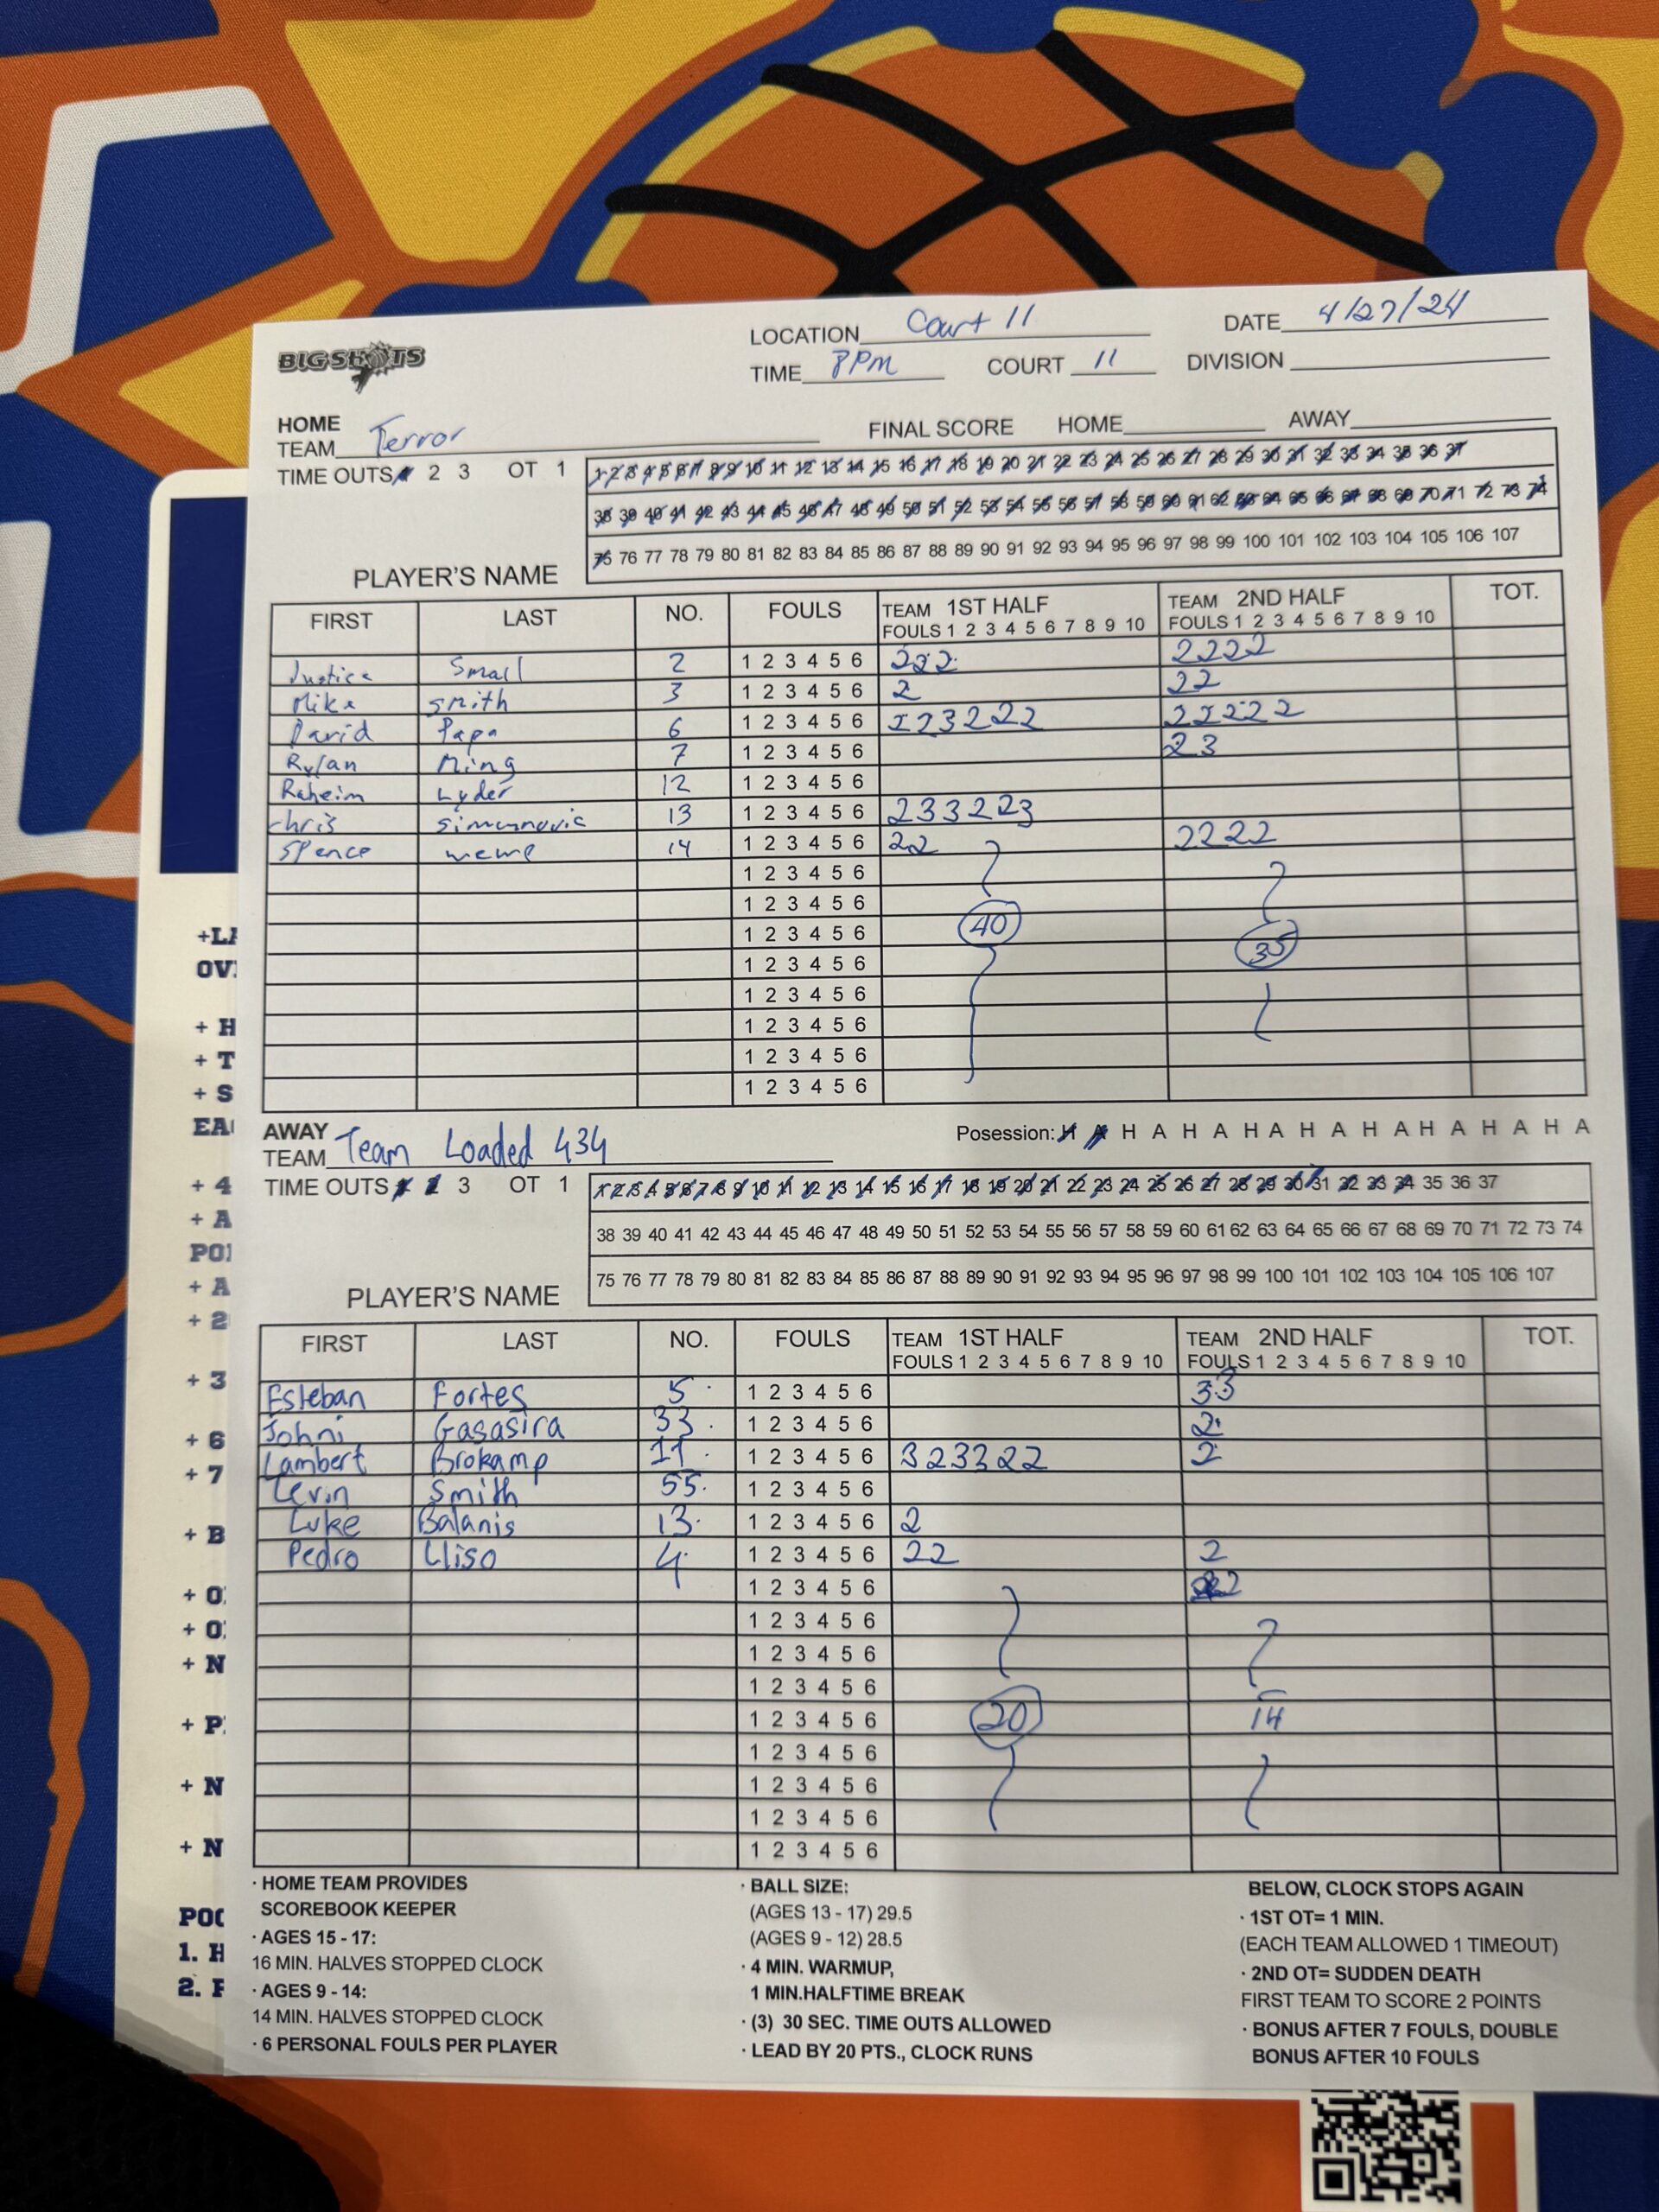 BIGSHOTS
LOCATION Court 11 DATE 4/27/24
TIME 8PM COURT 11 DIVISION
HOME
TEAM Terror FINAL SCORE HOME AWAY
TIME OUTS 1 2 3 OT 1
1 2 3 4 5 6 7 8 9 10 11 12 13 14 15 16 17 18 19 20 21 22 23 24 25 26 27 28 29 30 31 32 33 34 35 36 37
38 39 40 41 42 43 44 45 46 47 48 49 50 51 52 53 54 55 56 57 58 59 60 61 62 63 64 65 66 67 68 69 70 71 72 73 74
75 76 77 78 79 80 81 82 83 84 85 86 87 88 89 90 91 92 93 94 95 96 97 98 99 100 101 102 103 104 105 106 107
PLAYER'S NAME
FIRST LAST NO. FOULS TEAM 1ST HALF FOULS 1 2 3 4 5 6 7 8 9 10 TEAM 2ND HALF FOULS 1 2 3 4 5 6 7 8 9 10 TOT.
Justice Small 2 1 2 3 4 5 6 222 2222
Mike Smith 3 1 2 3 4 5 6 2 22
David Papa 6 1 2 3 4 5 6 223222 22222
Rylan Ming 7 1 2 3 4 5 6 23
Raheim Lyder 12 1 2 3 4 5 6
chris 13 1 2 3 4 5 6 233223
Spence 14 1 2 3 4 5 6 22 2222
1 2 3 4 5 6
1 2 3 4 5 6
1 2 3 4 5 6 40 35
1 2 3 4 5 6
1 2 3 4 5 6
1 2 3 4 5 6
1 2 3 4 5 6
1 2 3 4 5 6
AWAY
TEAM Team Loaded 434 Posession: H A H A H A H A H A H A H A H A H A
TIME OUTS 1 2 3 OT 1
1 2 3 4 5 6 7 8 9 10 11 12 13 14 15 16 17 18 19 20 21 22 23 24 25 26 27 28 29 30 31 32 33 34 35 36 37
38 39 40 41 42 43 44 45 46 47 48 49 50 51 52 53 54 55 56 57 58 59 60 61 62 63 64 65 66 67 68 69 70 71 72 73 74
75 76 77 78 79 80 81 82 83 84 85 86 87 88 89 90 91 92 93 94 95 96 97 98 99 100 101 102 103 104 105 106 107
PLAYER'S NAME
FIRST LAST NO. FOULS TEAM 1ST HALF FOULS 1 2 3 4 5 6 7 8 9 10 TEAM 2ND HALF FOULS 1 2 3 4 5 6 7 8 9 10 TOT.
Esteban Fortes 5 1 2 3 4 5 6 33
Johni Gasasira 33 1 2 3 4 5 6 2
Lambert Brokamp 11 1 2 3 4 5 6 323322 2
Levin Smith 55 1 2 3 4 5 6
Luke Balanis 13 1 2 3 4 5 6 2
Pedro Lliso 4 1 2 3 4 5 6 22 2
1 2 3 4 5 6 2
1 2 3 4 5 6
1 2 3 4 5 6
1 2 3 4 5 6
1 2 3 4 5 6 20 14
1 2 3 4 5 6
1 2 3 4 5 6
1 2 3 4 5 6
1 2 3 4 5 6
· HOME TEAM PROVIDES
SCOREBOOK KEEPER
· AGES 15 - 17:
16 MIN. HALVES STOPPED CLOCK
· AGES 9 - 14:
14 MIN. HALVES STOPPED CLOCK
· 6 PERSONAL FOULS PER PLAYER
· BALL SIZE:
(AGES 13 - 17) 29.5
(AGES 9 - 12) 28.5
· 4 MIN. WARMUP,
1 MIN.HALFTIME BREAK
· (3) 30 SEC. TIME OUTS ALLOWED
· LEAD BY 20 PTS., CLOCK RUNS
BELOW, CLOCK STOPS AGAIN
· 1ST OT= 1 MIN.
(EACH TEAM ALLOWED 1 TIMEOUT)
· 2ND OT= SUDDEN DEATH
FIRST TEAM TO SCORE 2 POINTS
· BONUS AFTER 7 FOULS, DOUBLE
BONUS AFTER 10 FOULS